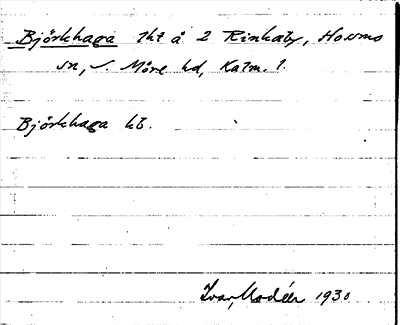 Björkhaga lht å 2 Rinkaby, Hossmo
sn, S. Möre hd, Kalm. l.
Björkhaga kb.
Ivar Modéer 1930